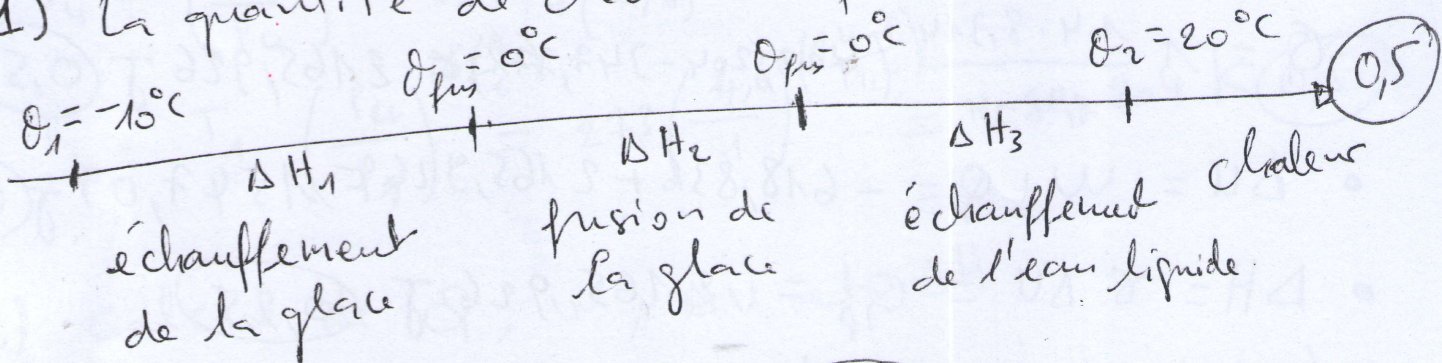 1) La quantité de cha
θ₁ = -10°C
θfus = 0°C
θfus = 0°C
θ₂ = 20°C
0,5
ΔH₁
ΔH₂
ΔH₃
chaleur
échauffement
de la glace
fusion de
la glace
échauffement
de l'eau liquide.